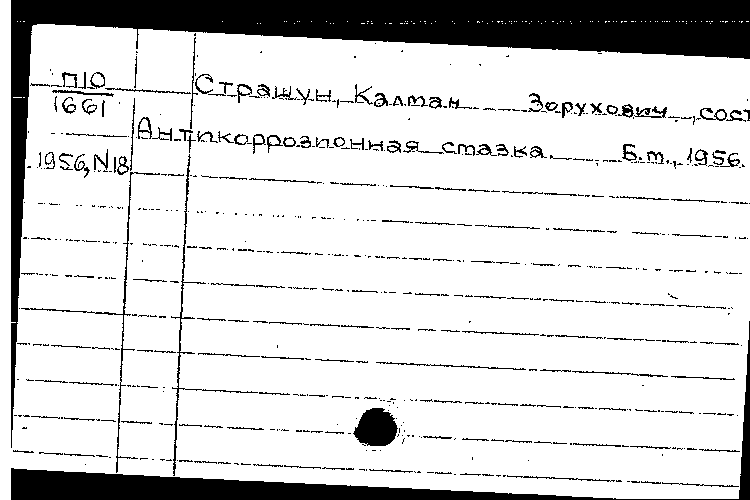 П10
1661
1956, N18
Страшун, Калман Зорухович, сост
Антикоррозионная смазка. Б.м., 1956.